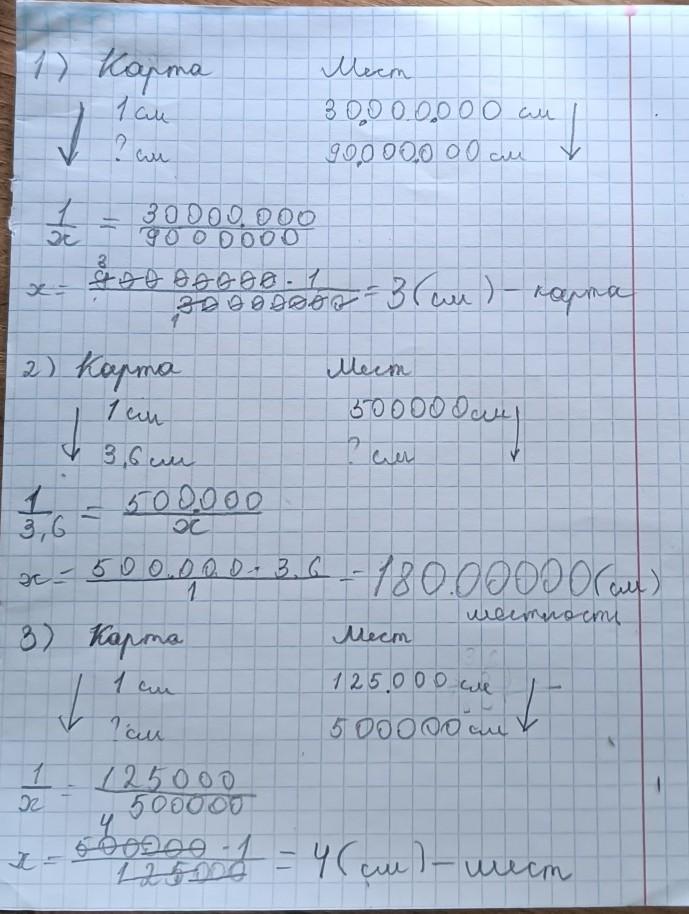 1) Карта Мест
1 см 30.000.000 см
? см 90.000.000 см
1/x = 30000.000/9000000
x = 90000000 · 1/30000000 = 3 (см) – карта
3
1
2) Карта Мест
1 см 500000 см
3,6 см ? см
1/3,6 = 500.000/x
x = 500.000 · 3,6/1 = 180.00000 (см)
местность
3) Карта Мест
1 см 125.000 см
? см 500000 см
1/x = 125000/500000
4
x = 500000 · 1/125000 = 4 (см) – мест